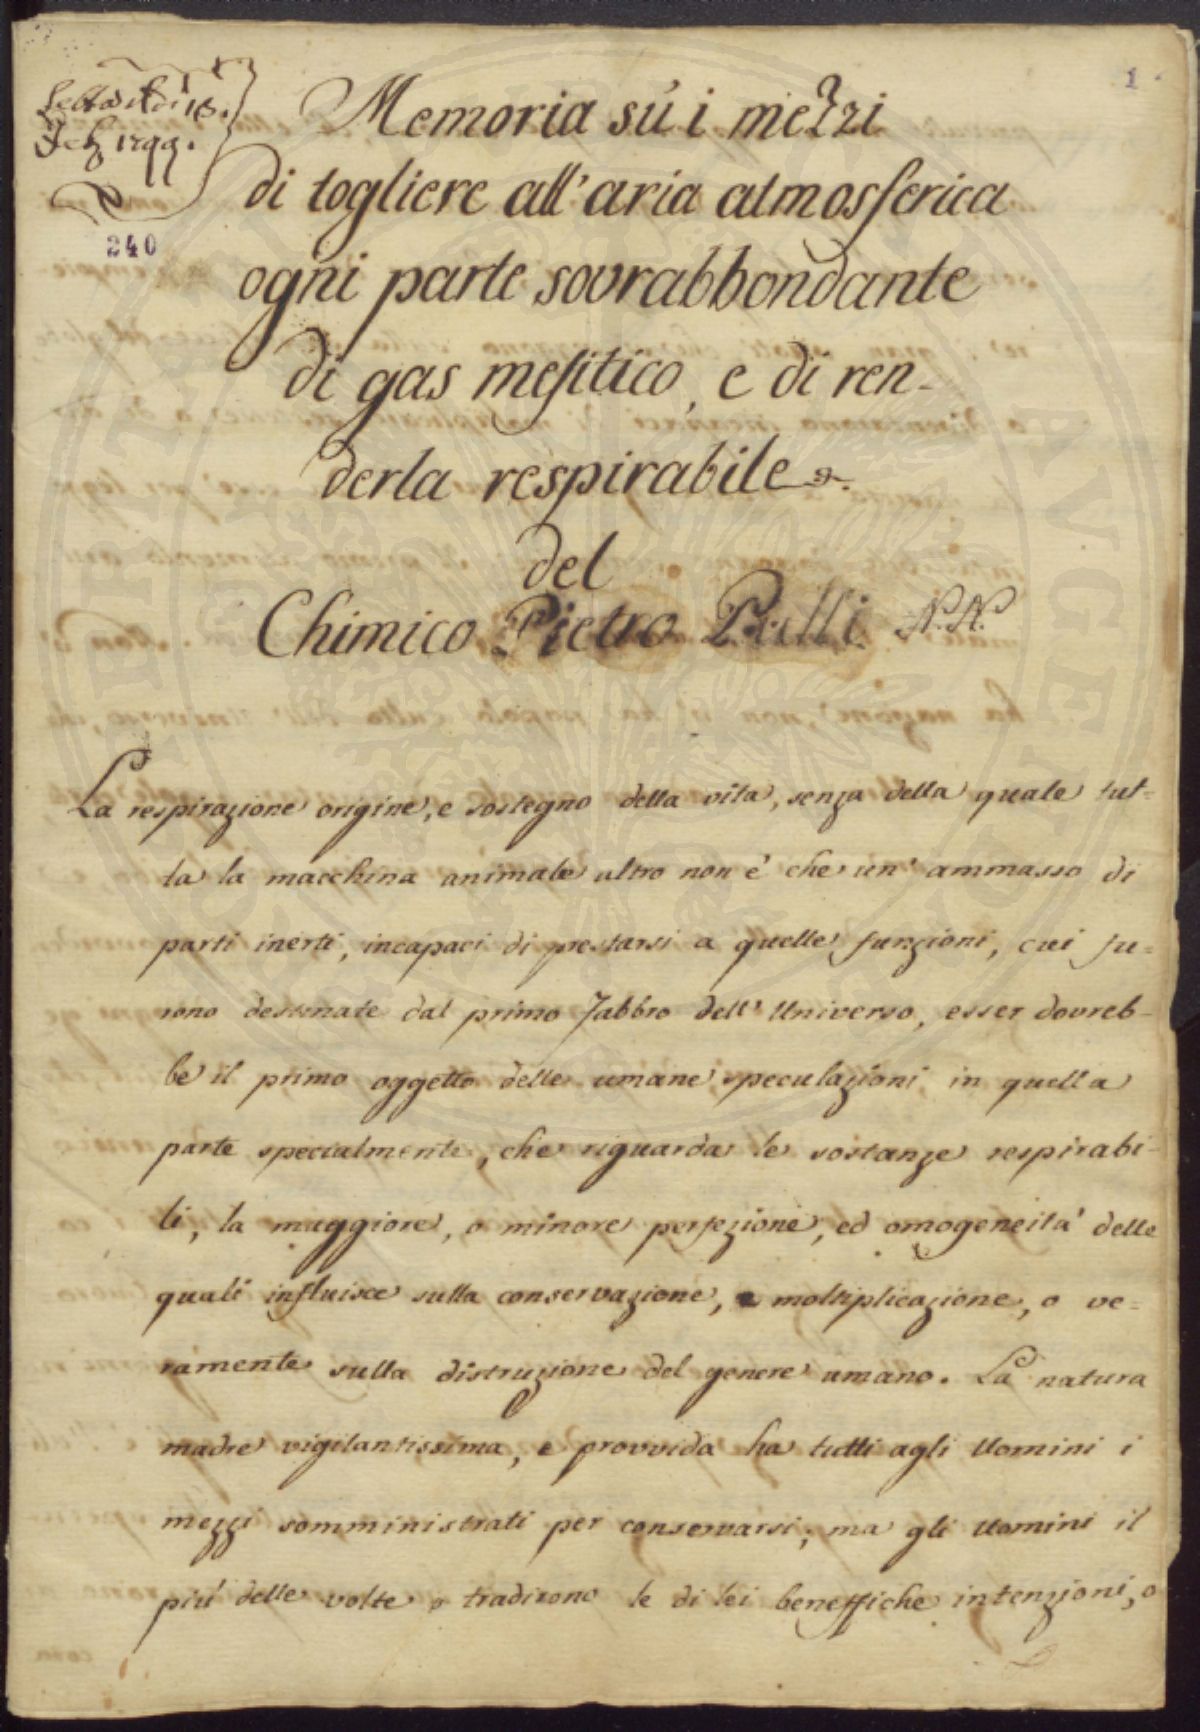 Letta il dì 18.
Feb. 1799.
240
1
Memoria sú i mezzi
di togliere all'aria atmosferica
ogni parte sovrabbondante
di gas mefitico, e di ren-
derla respirabile.
del
Chimico Pietro Pulli N.N.
La respirazione origine, e sostegno della vita, senza della quale tut-
ta la macchina animale altro non è che un' ammasso di
parti inerti, incapaci di prestarsi a quelle funzioni, cui fu-
rono destinate dal primo Fabbro dell' Universo, esser dovreb-
be il primo oggetto delle umane speculazioni, in quella
parte specialmente, che riguarda le sostanze respirabi-
li, la maggiore, o minore perfezione, ed omogeneità delle
quali influisce sulla conservazione, e moltiplicazione, o ve-
ramente sulla distruzione del genere umano. La natura
madre vigilantissima, e provvida ha tutti agli Uomini i
mezzi somministrati per conservarsi; ma gli Uomini il
più delle volte o tradirono le di lei beneffiche intenzioni, o